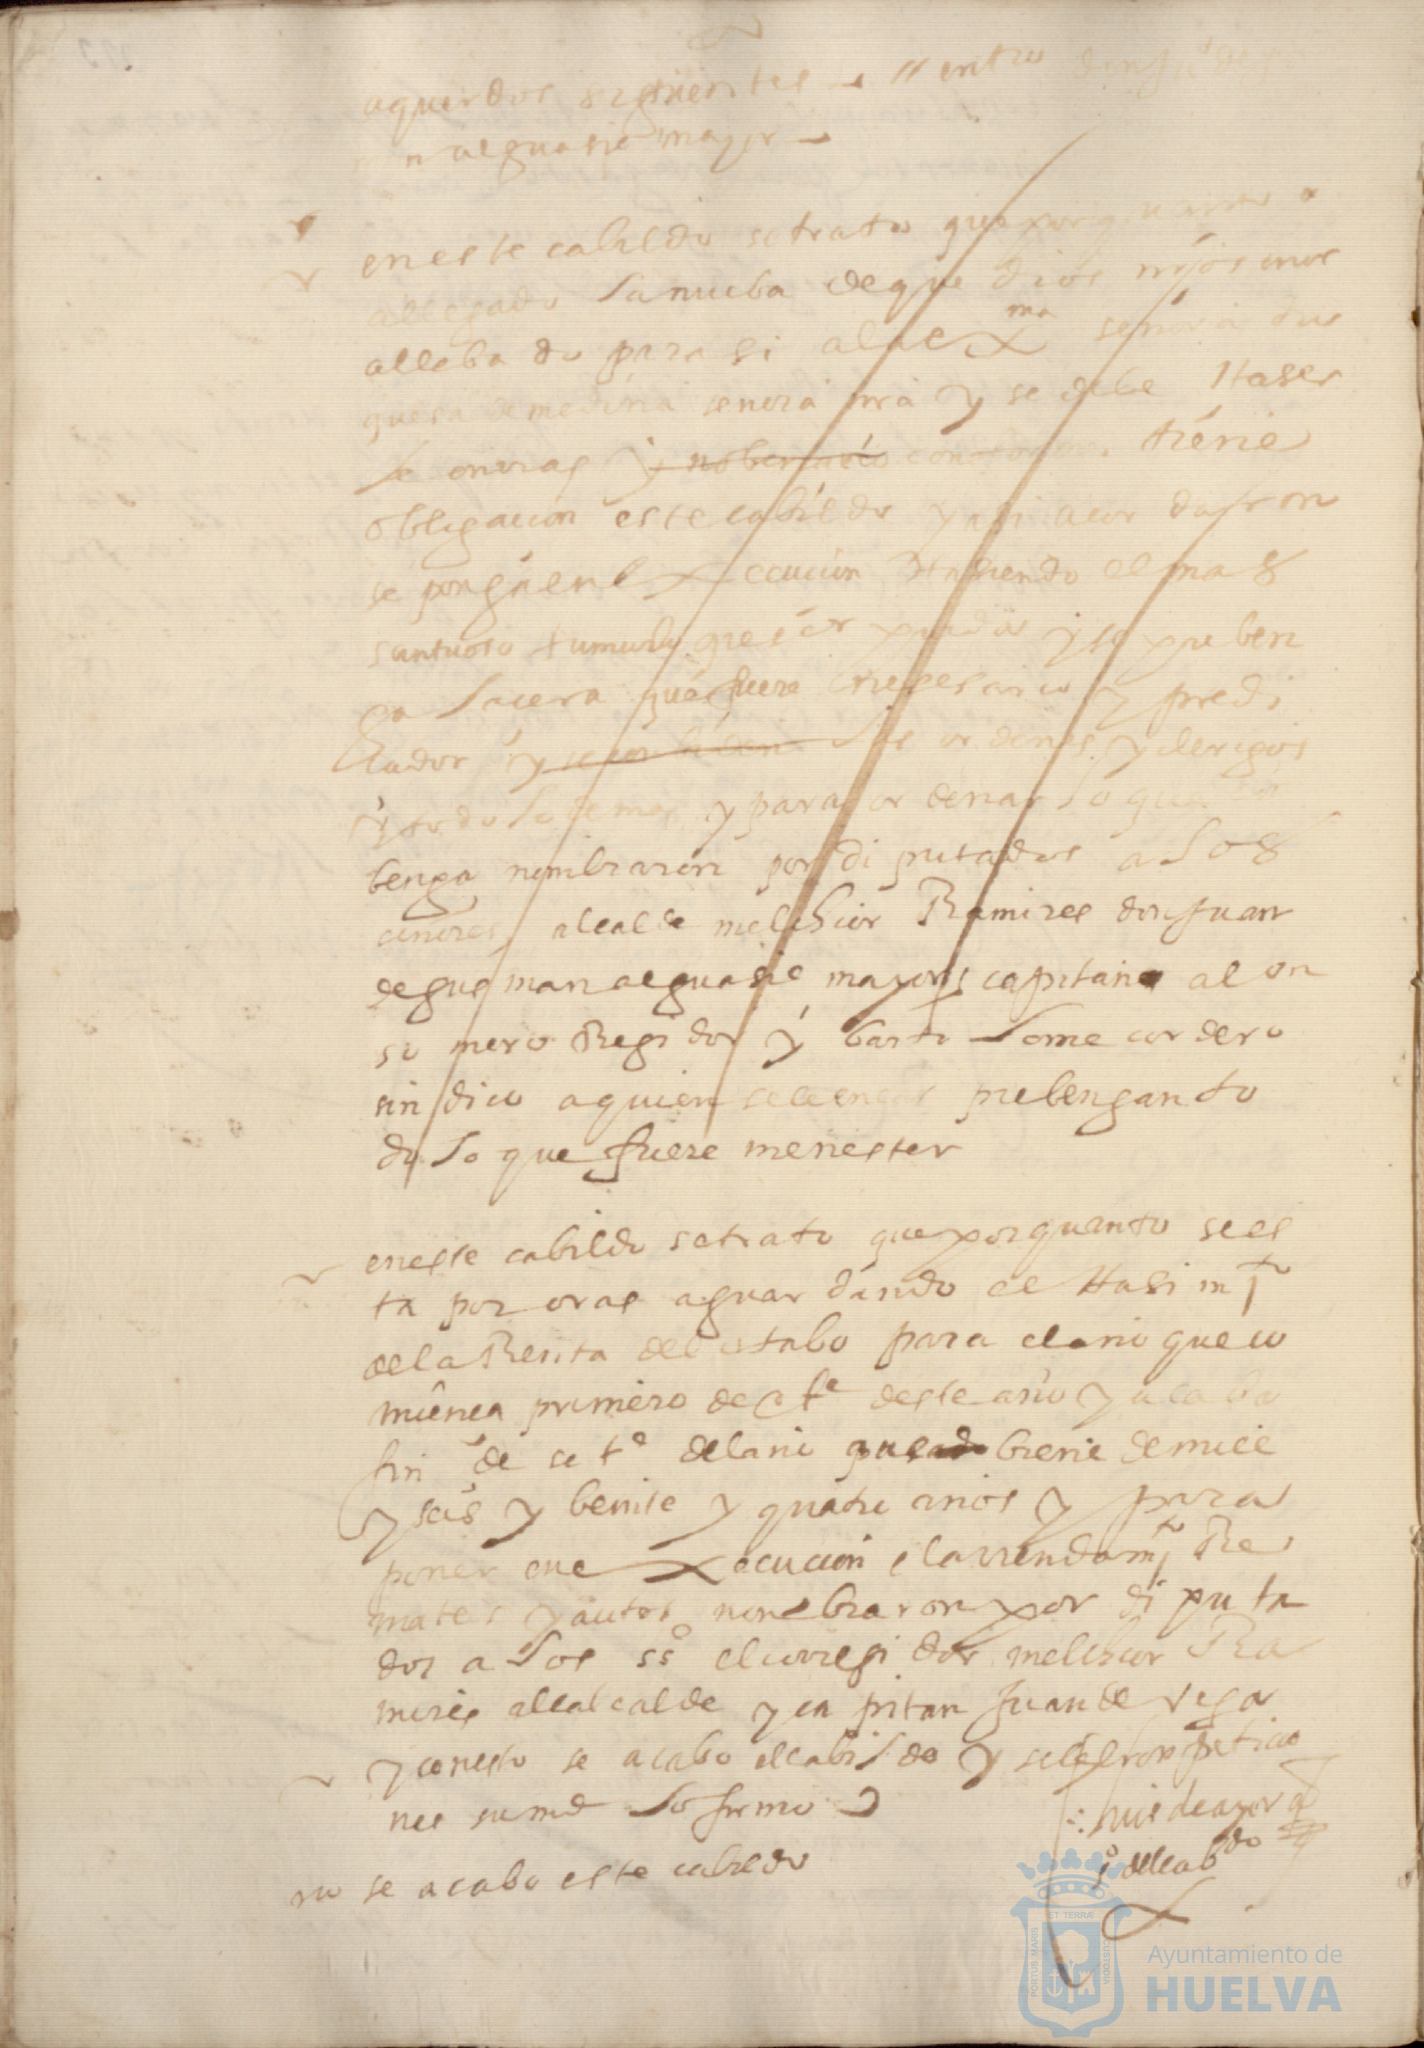 aquerdos siguientes entro don ju° de
n alguasil mayor
en este cabildo se trato que por quanto a
allegado la nueba de que dios nr̃o sr nos
alleba do para si a la ex ma señora du
quesa de medina señora nra y se debe Haser
le onrras y conforme tiene
obligacion este cabildo y asi acordaron
se ponga en ex ecucion Hasiendo el mas
suntuoso tumulo que ser pueda y se preben
ga la cera que fuere nesesario y predi
cador y las ordenes y clerigos
y todo lo demas y para ordenar lo que con
benga nombraron por di putados a los
señores alcalde melchior Ramires don Juan
de gus man alguasil mayor capitan alon
so mero Regidor y barto lome cordero
sin dico a quien se le encarga prebengan to
do lo que fuere menester
en este cabildo se trato que por quanto se es
ta por oras aguardando el Hasimto
de la Renta del stabo para el año que co
miensa primero de ote deste año y acaba
fin de set e del año que biene de mil
y seis y beinte y quatro años y para
poner en e xecucion el arrendamto Re
mates y autos nonbraron por di puta
dos a los sses el corregi dor melchor Ra
mires alcalde y ca pitan Juan de vega
y con esto se acabo el cabildo y se leyeron petisio
nes su md lo firmo
luis de ayor ga
so del cabdo
no se acabo este cabildo
PORTUS MARIS ET TERRAE CUSTODIA
Ayuntamiento de
HUELVA